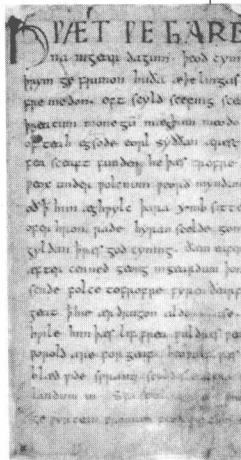 HǷÆT ǷE GARDE
na ingear dagum. þeod cyn
þrym ge frunon huða æþelingas
fremedon. oft scyld scefing sce
þreatum monegū mægþum meodo
of teah egsode eorl syððan ærest
fea sceaft funden he þæs frofre
ƿeox under ƿolcnum ƿeorð myndum
oð þ him æghƿylc þara ymb sitte
ofer hron rade hyran scolde gom
gyldan þ ƿæs god cyning. ðæm eafe
æfter cenned geong ingeardum þon
sende folce tofrofre fyren ðearf
geat þ hie ær drugon aldor ase.
hƿile him þæs lif frea ƿuldres ƿea
ƿorold are for geaf. beoƿulf ƿæs
blæd ƿide sprang scyldes eafera
landum in
ge ƿyrcean fromum feoh